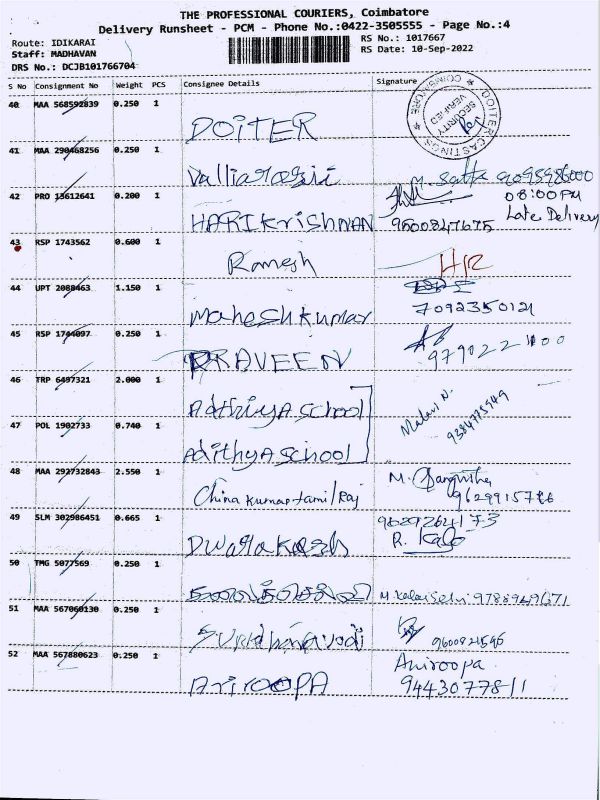 THE PROFESSIONAL COURIERS, Coimbatore
Delivery Runsheet - PCM - Phone No.:0422-3505555 - Page No.:4
Route: IDIKARAI
Staff: MADHAVAN
DRS No.: DCJB101766704
RS No.: 1017667
RS Date: 10-Sep-2022
S No Consignment No Weight PCS Consignee Details Signature
40 MAA 568592839 0.250 1 DOITER
DOITER CASTINGS * COIMBATORE *
SECURITY VERIFIED
41 MAA 290468256 0.250 1 M. 9095986000
42 PRO 13612641 0.200 1 HARIKrishNAN 9600847675
08:00PM
Late Delivery
43 RSP 1743562 0.600 1 Ramesh HR
44 UPT 2088463 1.150 1 Maheshkumar 7092350121
45 RSP 1744097 0.250 1 PRAVEEN
46 TRP 6497321 2.000 1 Adthiya school Malavi N.
47 POL 1902733 0.740 1 Adithya school
48 MAA 292732843 2.550 1 China kumar tamil Raj M.
49 SLM 302986451 0.665 1 R.
50 TMG 5077569 0.250 1 M. Kalaiselvi 9788949671
51 MAA 567060130 0.250 1
52 MAA 567880623 0.250 1 AniROOPA Aniroopa
9443077811